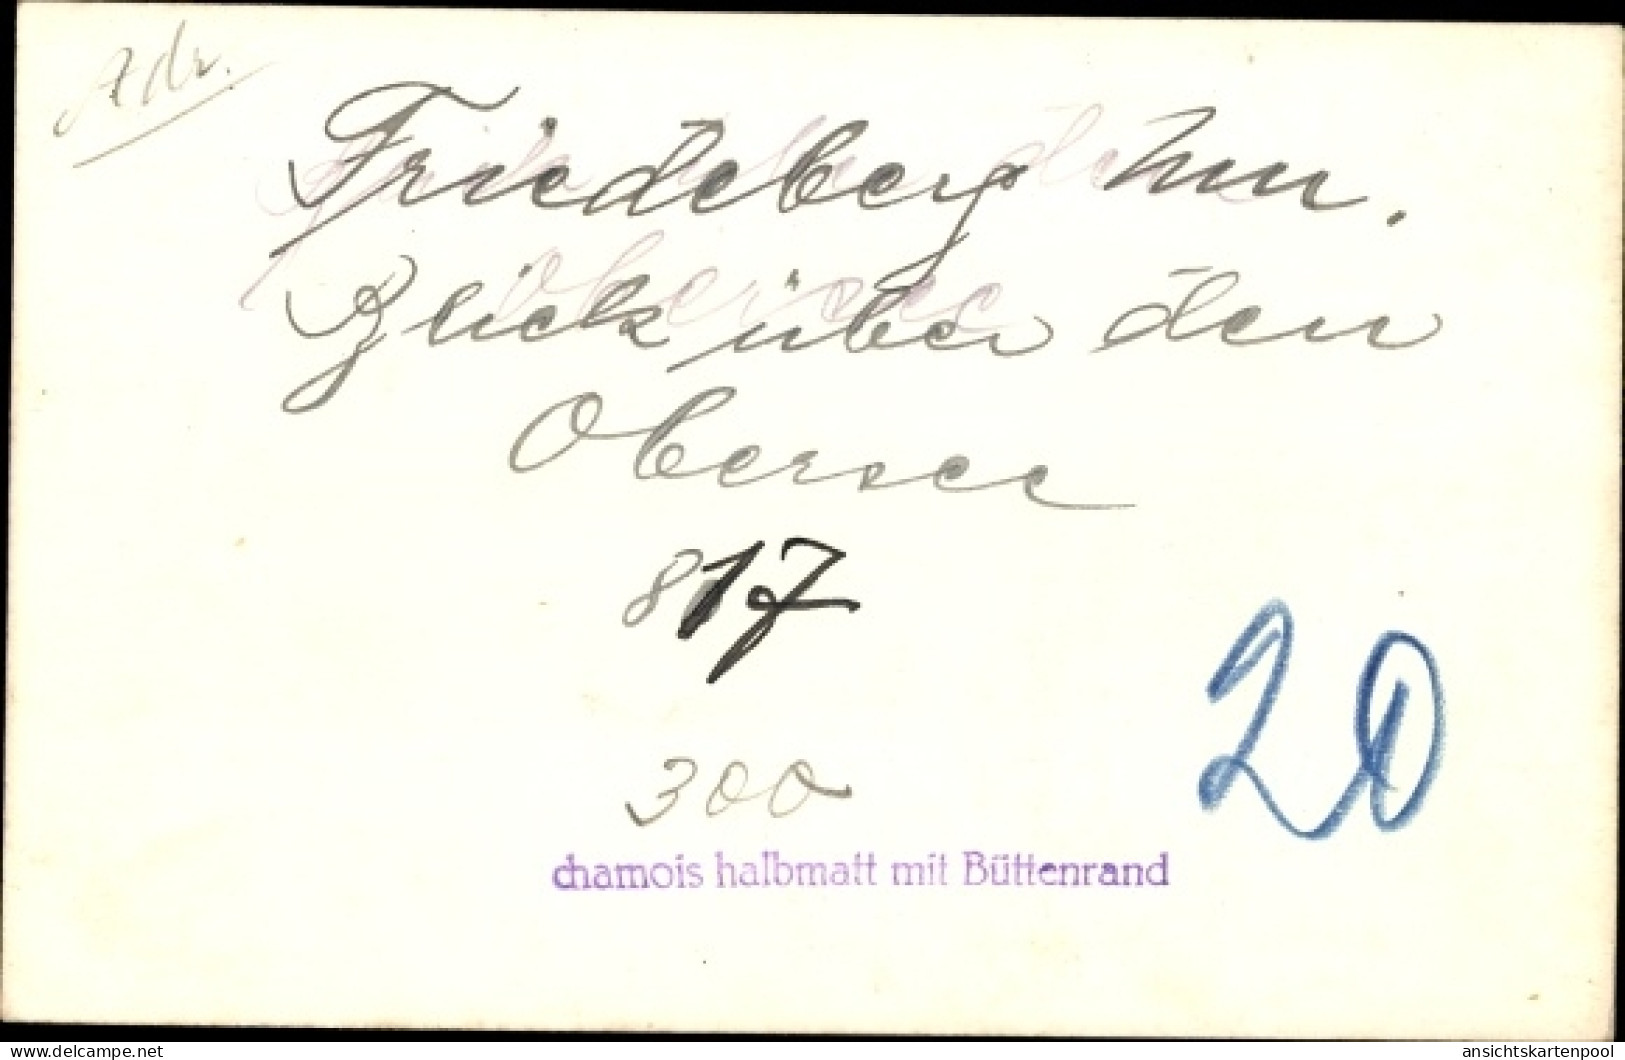 Adr.
Friedeberg Nm.
Blick über den
Obersee
817
20
300
chamois halbmatt mit Büttenrand
www.delcampe.net
ansichtskartenpool